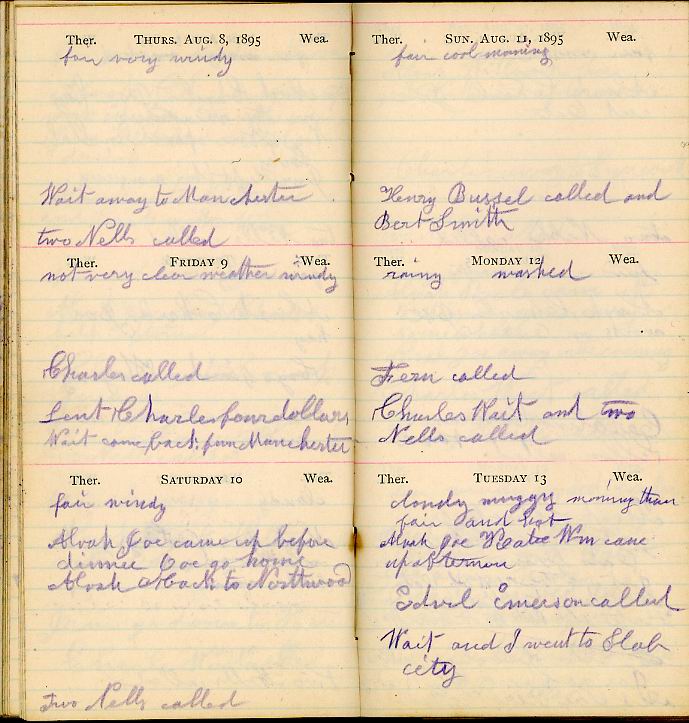 Ther. THURS. AUG. 8, 1895 Wea.
fair very windy
Wait away to Manchester
two Nells called
Ther. FRIDAY 9 Wea.
not very clear weather windy
Charles called
Lent Charles four dollars
Wait come back from Manchester
Ther. SATURDAY 10 Wea.
fair windy
Alvah Joe came up before
dinner Joe go home
Alvah back to Northwood
Two Nells called
Ther. SUN. AUG. 11, 1895 Wea.
fair cool morning
Henry Bussel called and
Bert Smith
Ther. MONDAY 12 Wea.
rainy washed
Fern called
Charles Wait and two
Nells called
Ther. TUESDAY 13 Wea.
cloudy muggy morning than
fair and hot
Alvah Joe Katie Wm came
up afternoon
Emerson called
Wait and I went to Slab
city